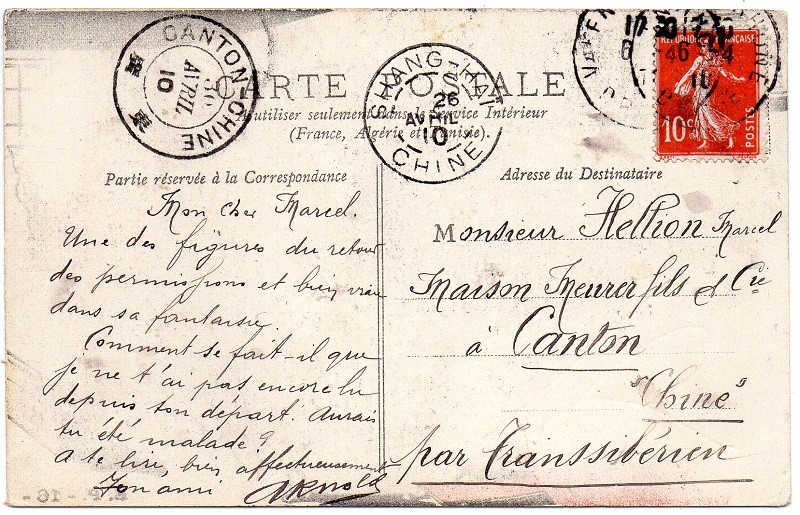 CARTE POSTALE
A utiliser seulement dans le Service Intérieur
(France, Algérie et Tunisie).
Partie réservée à la Correspondance
Mon cher Marcel.
Une des figures du retour
des permissions et bien vraie
dans sa fantaisie.
Comment se fait-il que
je ne t'ai pas encore lu
depuis ton départ. Aurais
tu été malade?
A te lire, bien affectueusement
Ton ami Arnold
Adresse du Destinataire
Monsieur Hellion Marcel
Maison Meurer fils & Cie
à Canton
"Chine"
par Transsibérien
CANTON-CHINE
AVRIL
10
SHANG-HAI
26
AVRIL
10
CHINE
REPUBLIQUE FRANÇAISE
10c
POSTES